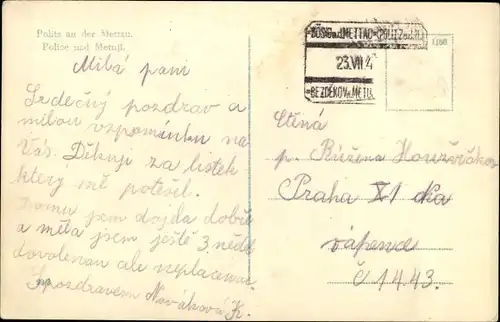 Politz an der Mettau.
Police nad Metují.
Milá paní
Srdečný pozdrav a
milou vzpomínku na
Vás. Děkuji za lístek
který mě potěšil.
Domu jsem dojela dobře
a měla jsem ještě 3 neděl
dovolenou ale neplacenou.
S pozdravem Nováková K.
BÖSIG a.d. METTAU-(POLITZ a.d.M.)
23.VII 4
BEZDĚKOV n. METUJ.
Ctěná
p. Růžena
Praha XI
č 1443.